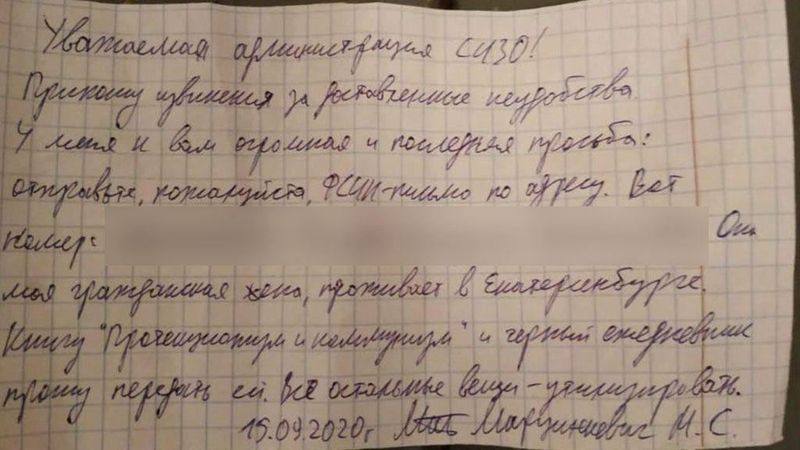 Уважаемая администрация СИЗО!
Приношу извинения за доставленные неудобства
У меня к вам огромная и последняя просьба:
отправьте, пожалуйста, ФСИН-письмо по адресу. Вот
номер: Она
моя гражданская жена, проживает в Екатеринбурге.
Книгу "Протекционизм и коммунизм" и черный ежедневник
прошу передать ей. Все остальные вещи - утилизировать.
15.09.2020г Марцинкевич М. С.